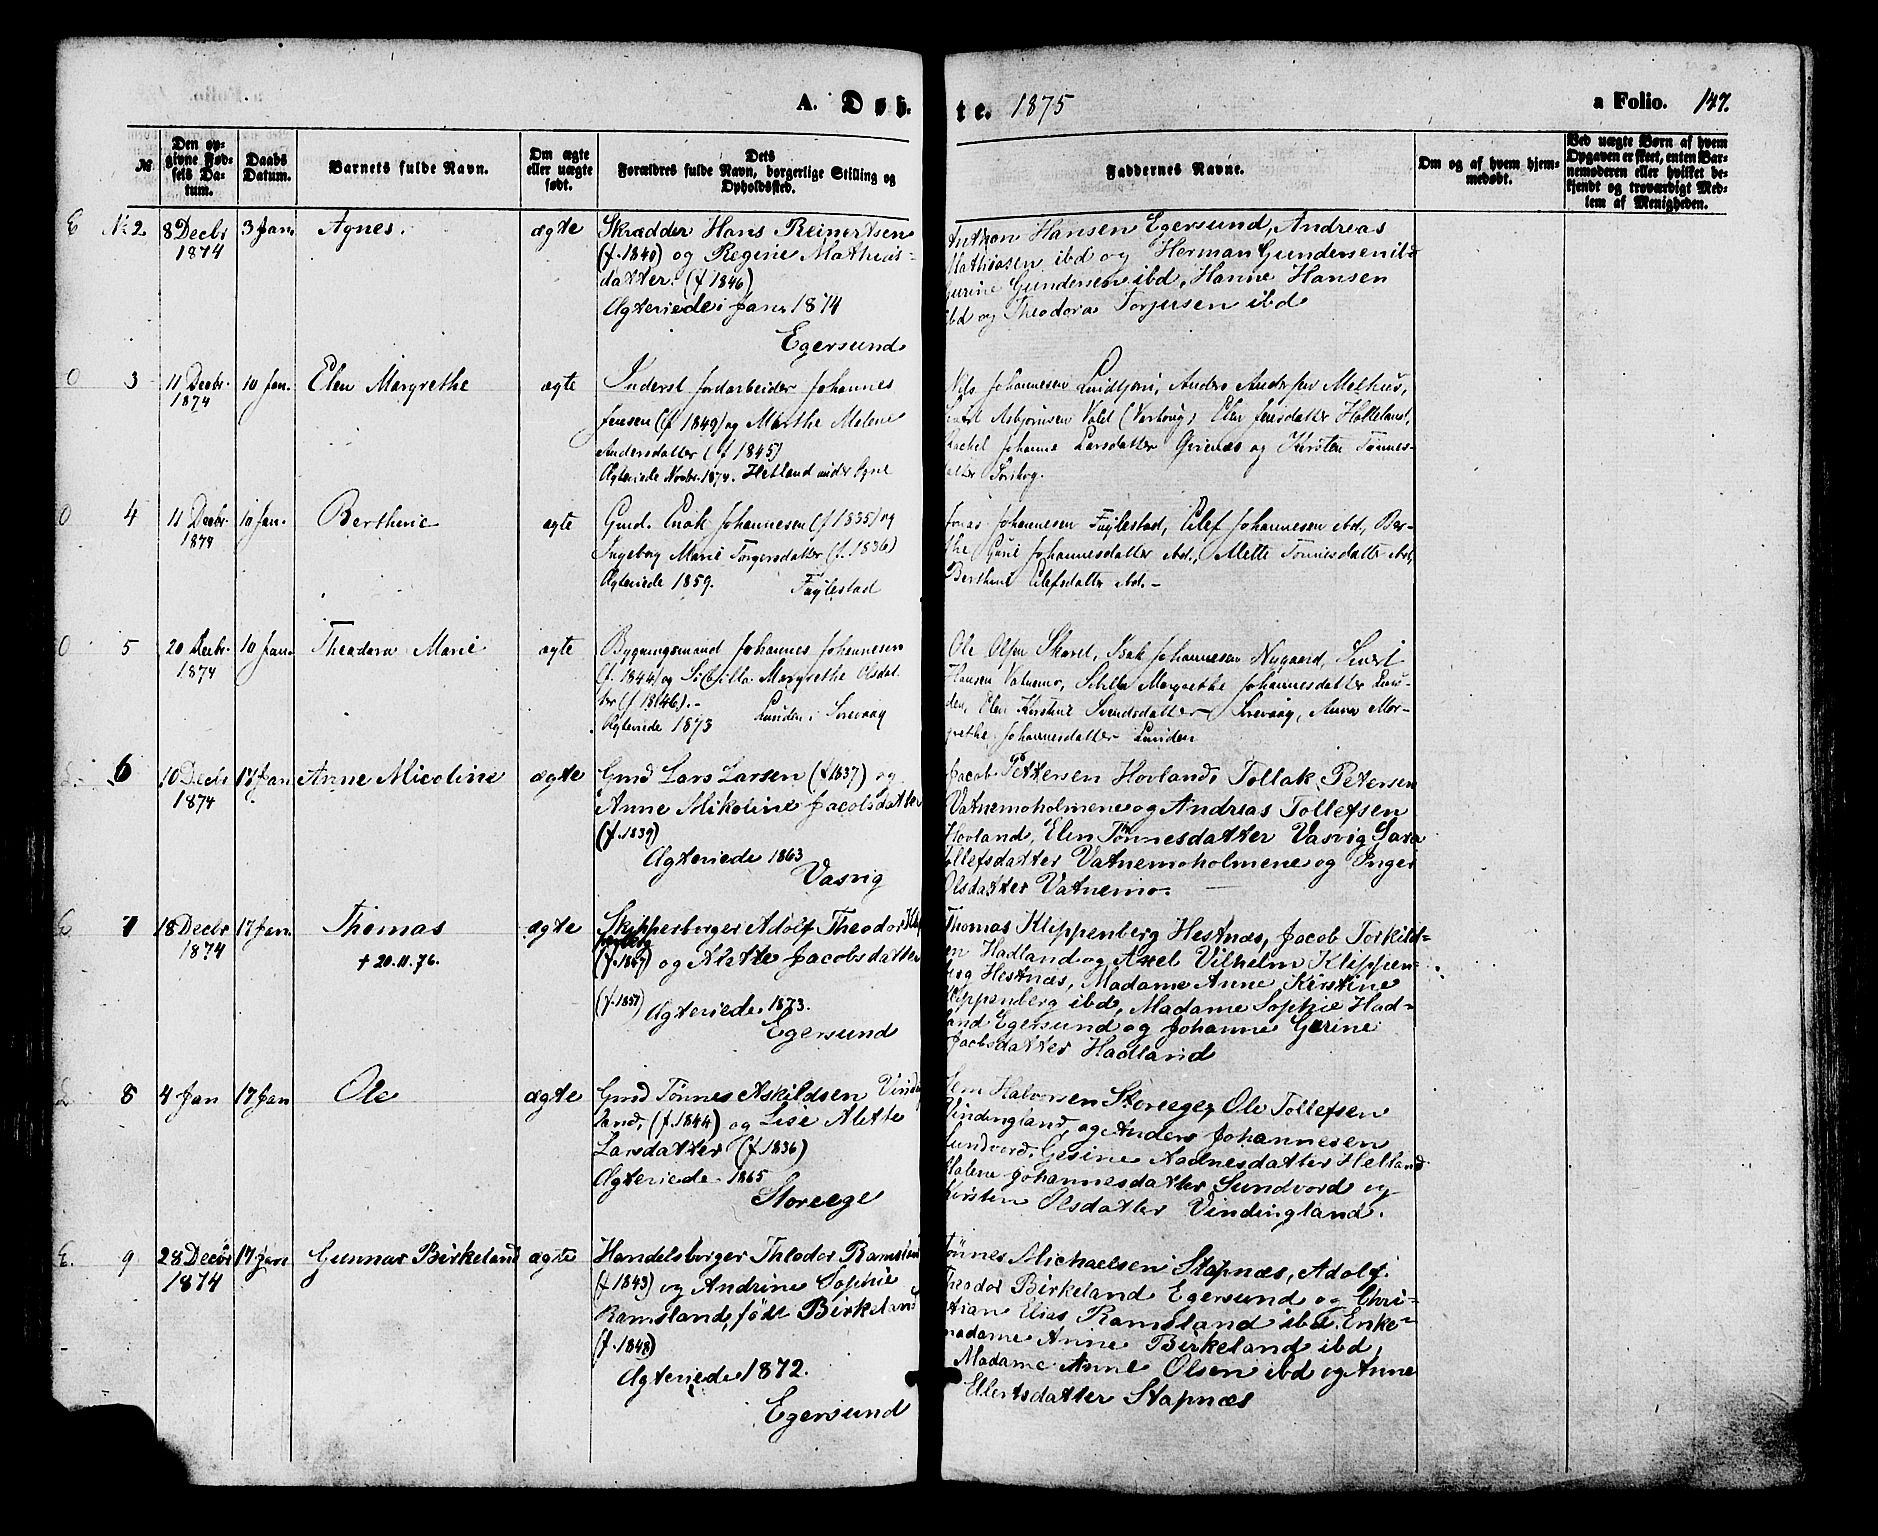 A. Døb-
te. 1875
a Folio. 147.
№
Den op-
givne Fød-
sels Da-
tum.
Daabs
Datum.
Barnets fulde Navn.
Om ægte
eller uægte
født.
Dets
Forældres fulde Navn, borgerlige Stilling og
Opholdssted.
Faddernes Navne.
Om og af hvem hjem-
medøbt.
Ved uægte Børn af hvem
Opgaven er skeet, enten Bar-
nemoderen eller hvilket be-
kjendt og troværdigt Med-
lem af Menigheden.
E
No 2
8 Decbr
1874
3 Jan.
Agnes.
ægte
Skrædder Hans Reinertsen
(f. 1840) og Regine Mathias-
datter. (f 1846)
Ægteviede i Jan. 1874
Egersund
Anthon Hansen Egersund, Andreas
Mathiasen ibd og Herman Gundersen ibd
Gurine Gundersen ibd, Hanne Hansen
ibd og Theodora Torjusen ibd
O
3
11 Decbr.
1874
10 Jan.
Elen Margrethe
ægte
Inderst Jordarbeider Johannes
Jensen (f 1849) og Marthe Malene
Andersdatter (f 1845)
Ægteviede Novbr. 1874. Hetland under
Nils Johannesen Anders Andersen Melhus,
Asbjørnsen Elen Jensdatter
Rachel Johanne Larsdatter og Kirsten Tønnes-
datter
O
4
11 Decbr.
1874
10 Jan.
Berthine
ægte
Gmd. Enok Johannesen (f 1835) og
Ingeborg Marie Torgersdatter (f. 1836)
Ægteviede 1859.
Fuglestad
Jonas Johannesen Fuglestad, Eilef Johannesen ibd., Ber-
the Johannesdatter ibd., Mette Tønnesdatter ibd,
Berthine Eilefsdatter ibd.-
O
5
20 Decbr.
1874
10 Jan.
Theodora Marie
ægte
Bygningsmand Johannes Johannesen
(f. 1844) og Sibille Margrethe Olsdat-
ter (f 1846).-
Ægteviede 1873
Lunden i Sirevaag
Ole Olsen Skaret, Isak Johannesen Nygaard, Sivert
Hansen Vatnemo, Sibille Margrethe Johannesdatter Lun-
den, Elen Kirstine Svendsdatter Sirevaag, Anna Mar-
grethe Johannesdatter Lunden
6
10 Decbr
1874
17 Jan
Anne Micoline
ægte
Gmd Lars Larsen (f 1837) og
Anne Mikoline Jacobsdatter
(f. 1839)
Ægteviede 1863
Vasvig
Jacob Pettersen Hovland, Tollak Petersen
Vatnemoholmene og Andreas Tollefsen
Hovland, Elen Tønnesdatter Vasvig Sara
Tollefsdatter Vatnemoholmene og Inger
Olsdatter Vatnemo.
E
7
18 Decbr
1874
17 Jan.
Thomas
† 20.11.76.
ægte
Skipperborger Adolf Theodor Klip-
penberg
(f. 1847) og Alette Jacobsdatter
(f. 1851)
Ægteviede 1873.
Egersund
Thomas Klippenberg Hestnæs, Jacob Torkild-
sen Hadland og Axel Vilhelm Klippen-
berg Hestnæs, Madame Anne Kirstine
Klippenberg ibd, Madame Sophie Had-
land Egersund og Johanne Gurine
Jacobsdatter Hadland
8
4 Jan
17 Jan
Ole
ægte
Gmd Tønnes Askildsen Vinding-
land, (f. 1844) og Lise Alette
Larsdatter (f. 1836)
Ægteviede 1865
Storeege
Jens Halvorsen Storeege, Ole Tollefsen
Vindingland, og Anders Johannesen
Sundvord, Gesine Aadnesdatter Helland
Malene Johannesdatter Sundvord og
Kirsten Olsdatter Vindingland.
E.
9
28 Decbr
1874
17 Jan
Gunnar Birkeland
ægte
Handelsborger Theodor Ramsland
(f 1843) og Andrine Sophie
Ramsland, født Birkeland
(f. 1848)
Ægteviede 1872.
Egersund
Tønnes Michaelsen Stapnæs, Adolf
Theodor Birkeland Egersund og Chri-
stian Elias Ramsland ibd. Enke-
madame Anne Birkeland ibd,
Madame Anne Olsen ibd og Anne
Elertsdatter Stapnæs